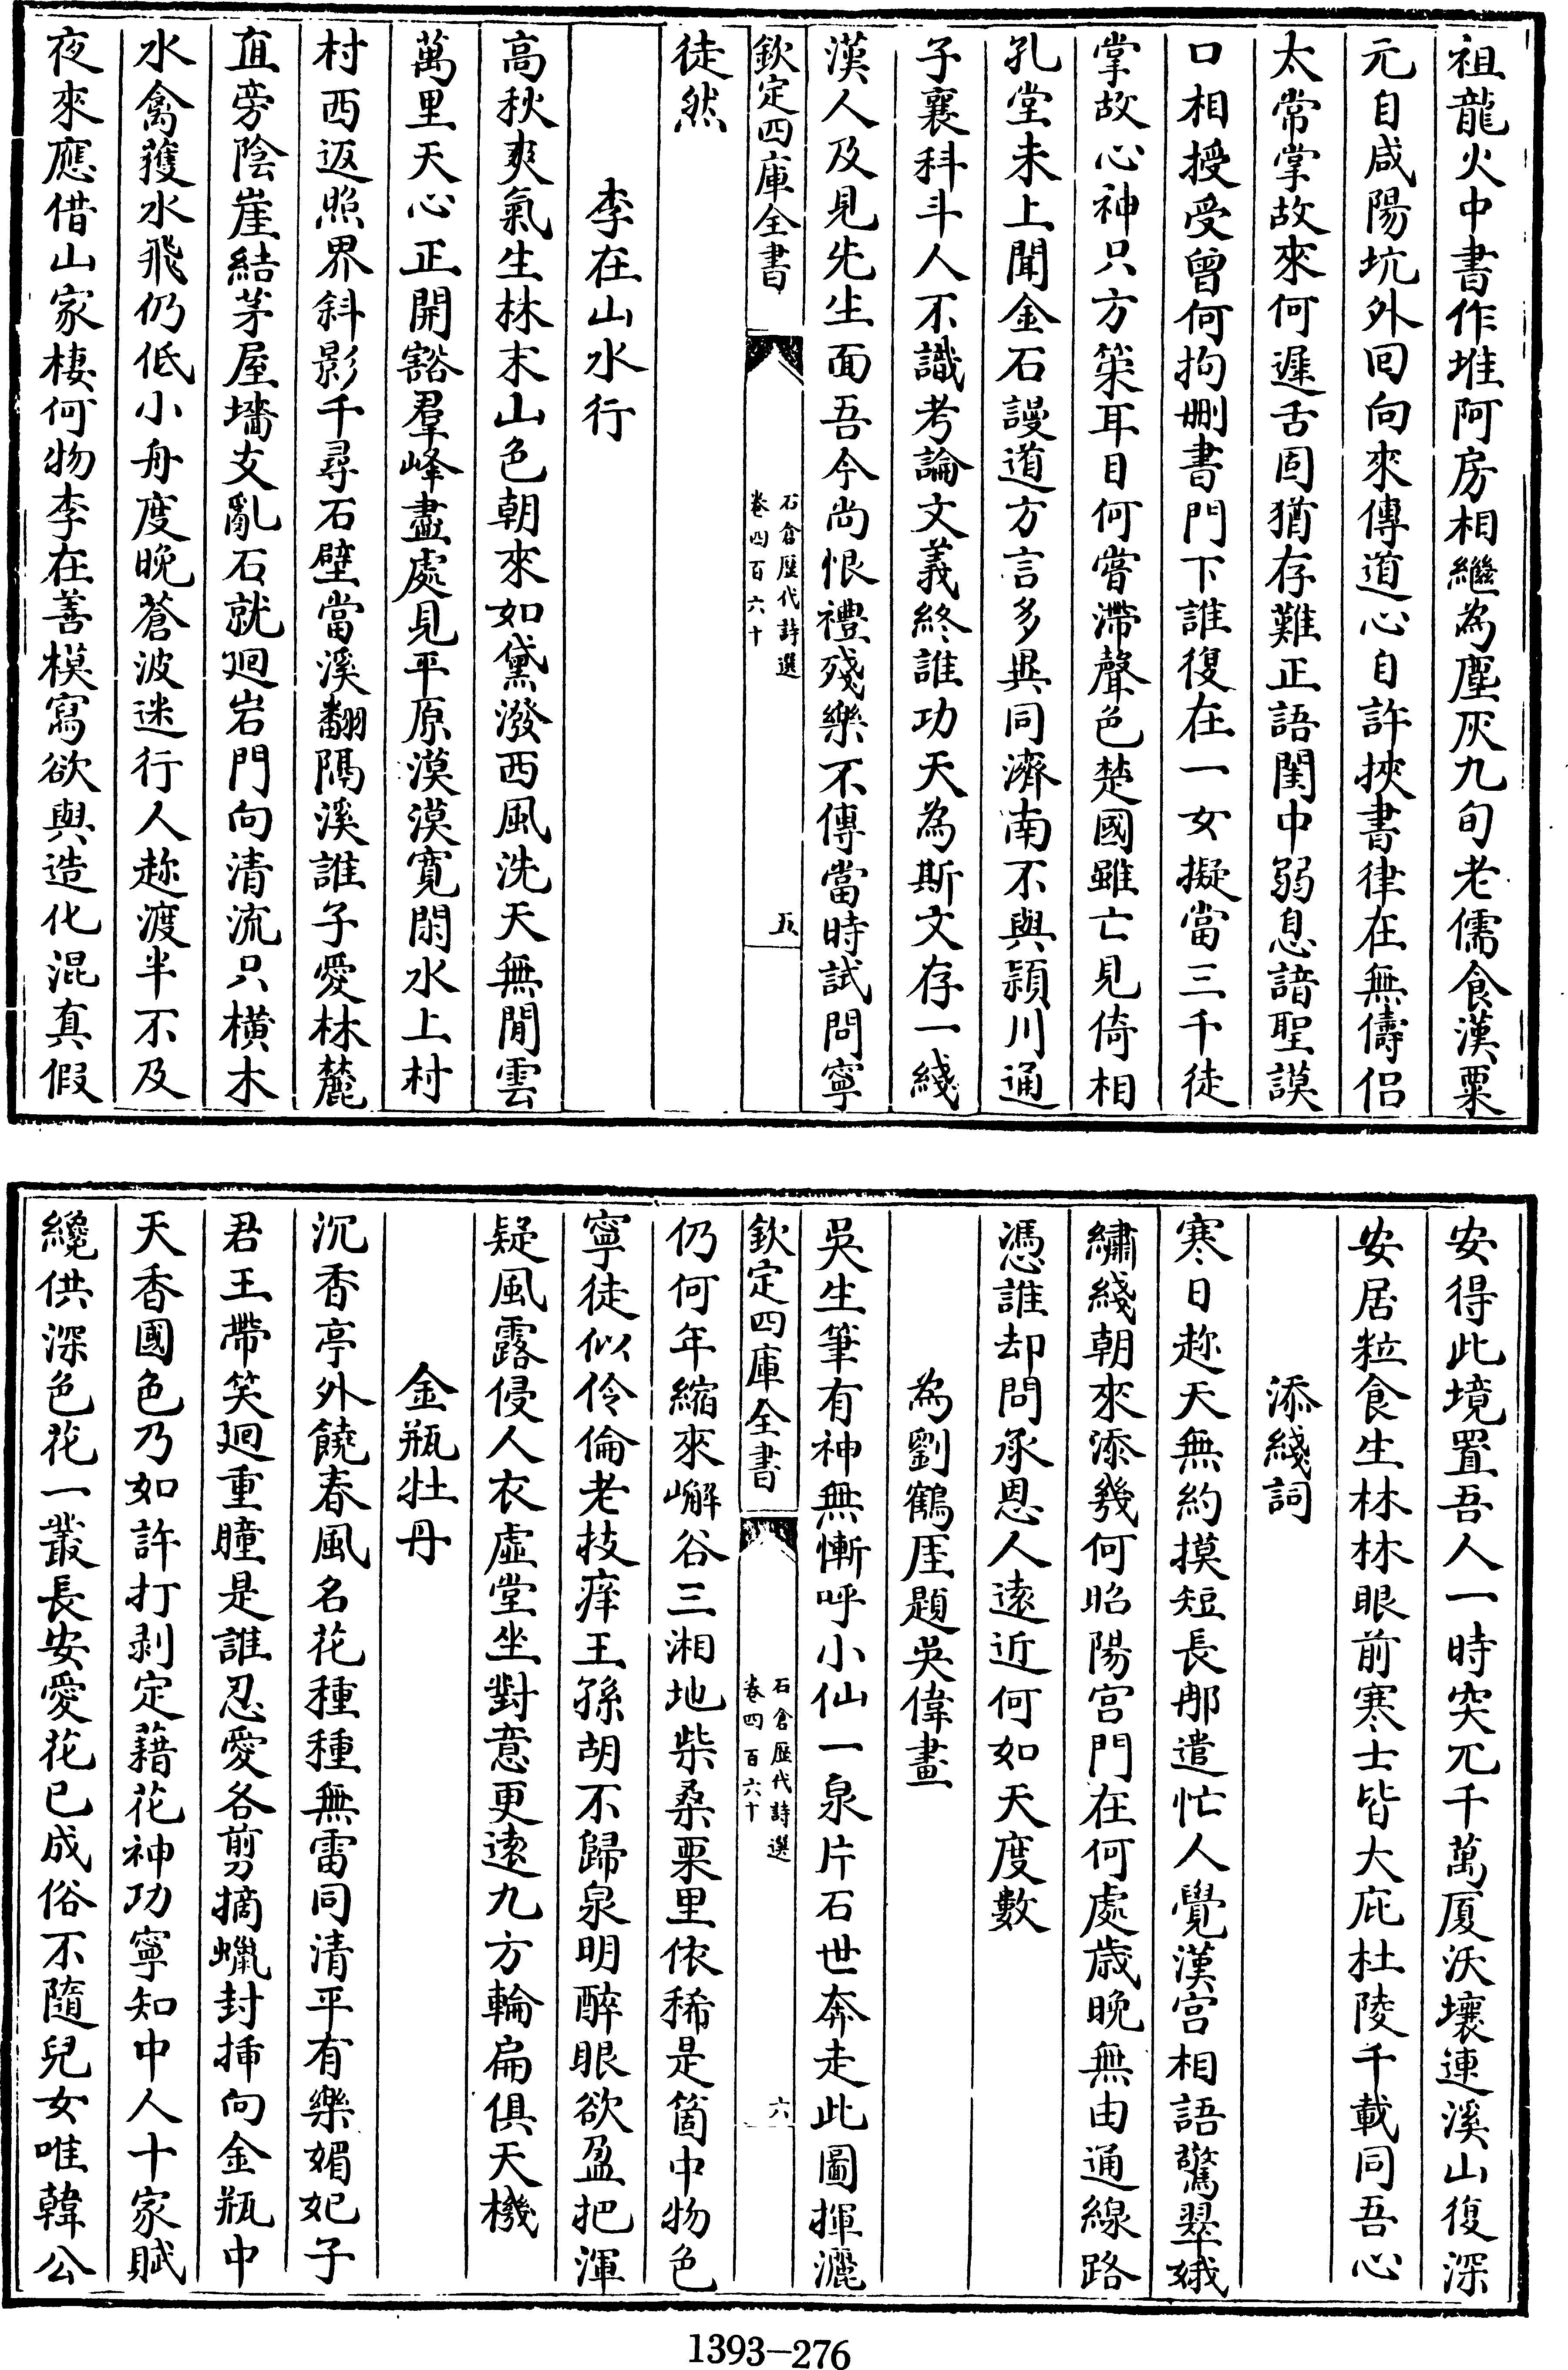 祖龍火中書作堆阿房相繼為塵灰九旬老儒食漢粟
元自咸陽坑外回向來傳道心自許挾書律在無儔侣
太常掌故來何遲舌固猶存難正語閨中弱息諳聖謨
口相授受曾何拘刪書門下誰復在一女擬當三千徒
掌故心神只方策耳目何嘗滯聲色楚國雖亡見倚相
孔堂未上聞金石謾道方言多異同濟南不與潁川通
子襄科斗人不識考論文義終誰功天為斯文存一綫
漢人及見先生面吾今尚恨禮殘樂不傳當時試問寧
欽定四庫全書 石倉歷代詩選 卷四百六十 五
徒然
李在山水行
高秋爽氣生林末山色朝來如黛潑西風洗天無閒雲
萬里天心正開豁羣峰盡處見平原漠漠寬閒水上村
村西返照界斜影千尋石壁當溪翻隔溪誰子愛林麓
直旁陰崖結茅屋墻支亂石就廻岩門向清流只橫木
水禽蔆水飛仍低小舟度晚蒼波迷行人趂渡半不及
夜來應借山家棲何物李在善模寫欲與造化混真假
安得此境置吾人一時突兀千萬厦沃壤連溪山復深
安居粒食生林林眼前寒士皆大庇杜陵千載同吾心
添綫詞
寒日趂天無約摸短長那遣忙人覺漢宫相語驚翠娥
繡綫朝來添幾何昭陽宫門在何處歲晚無由通線路
憑誰却問承恩人遠近何如天度數
為劉鶴厓題吳偉畫
吳生筆有神無慚呼小仙一泉片石世奔走此圖揮灑
欽定四庫全書 石倉歷代詩選 卷四百六十 六
仍何年縮來嶰谷三湘地柴桑栗里依稀是箇中物色
寧徒似伶倫老技痒王孫胡不歸泉明醉眼欲盈把渾
疑風露侵人衣虛堂坐對意更遠九方輪扁俱天機
金瓶牡丹
沉香亭外饒春風名花種種無雷同清平有樂媚妃子
君王帶笑廻重瞳是誰忍愛各剪摘蠟封揷向金瓶中
天香國色乃如許打剥定藉花神功寧知中人十家賦
纔供深色花一叢長安愛花已成俗不隨兒女唯韓公
1393-276